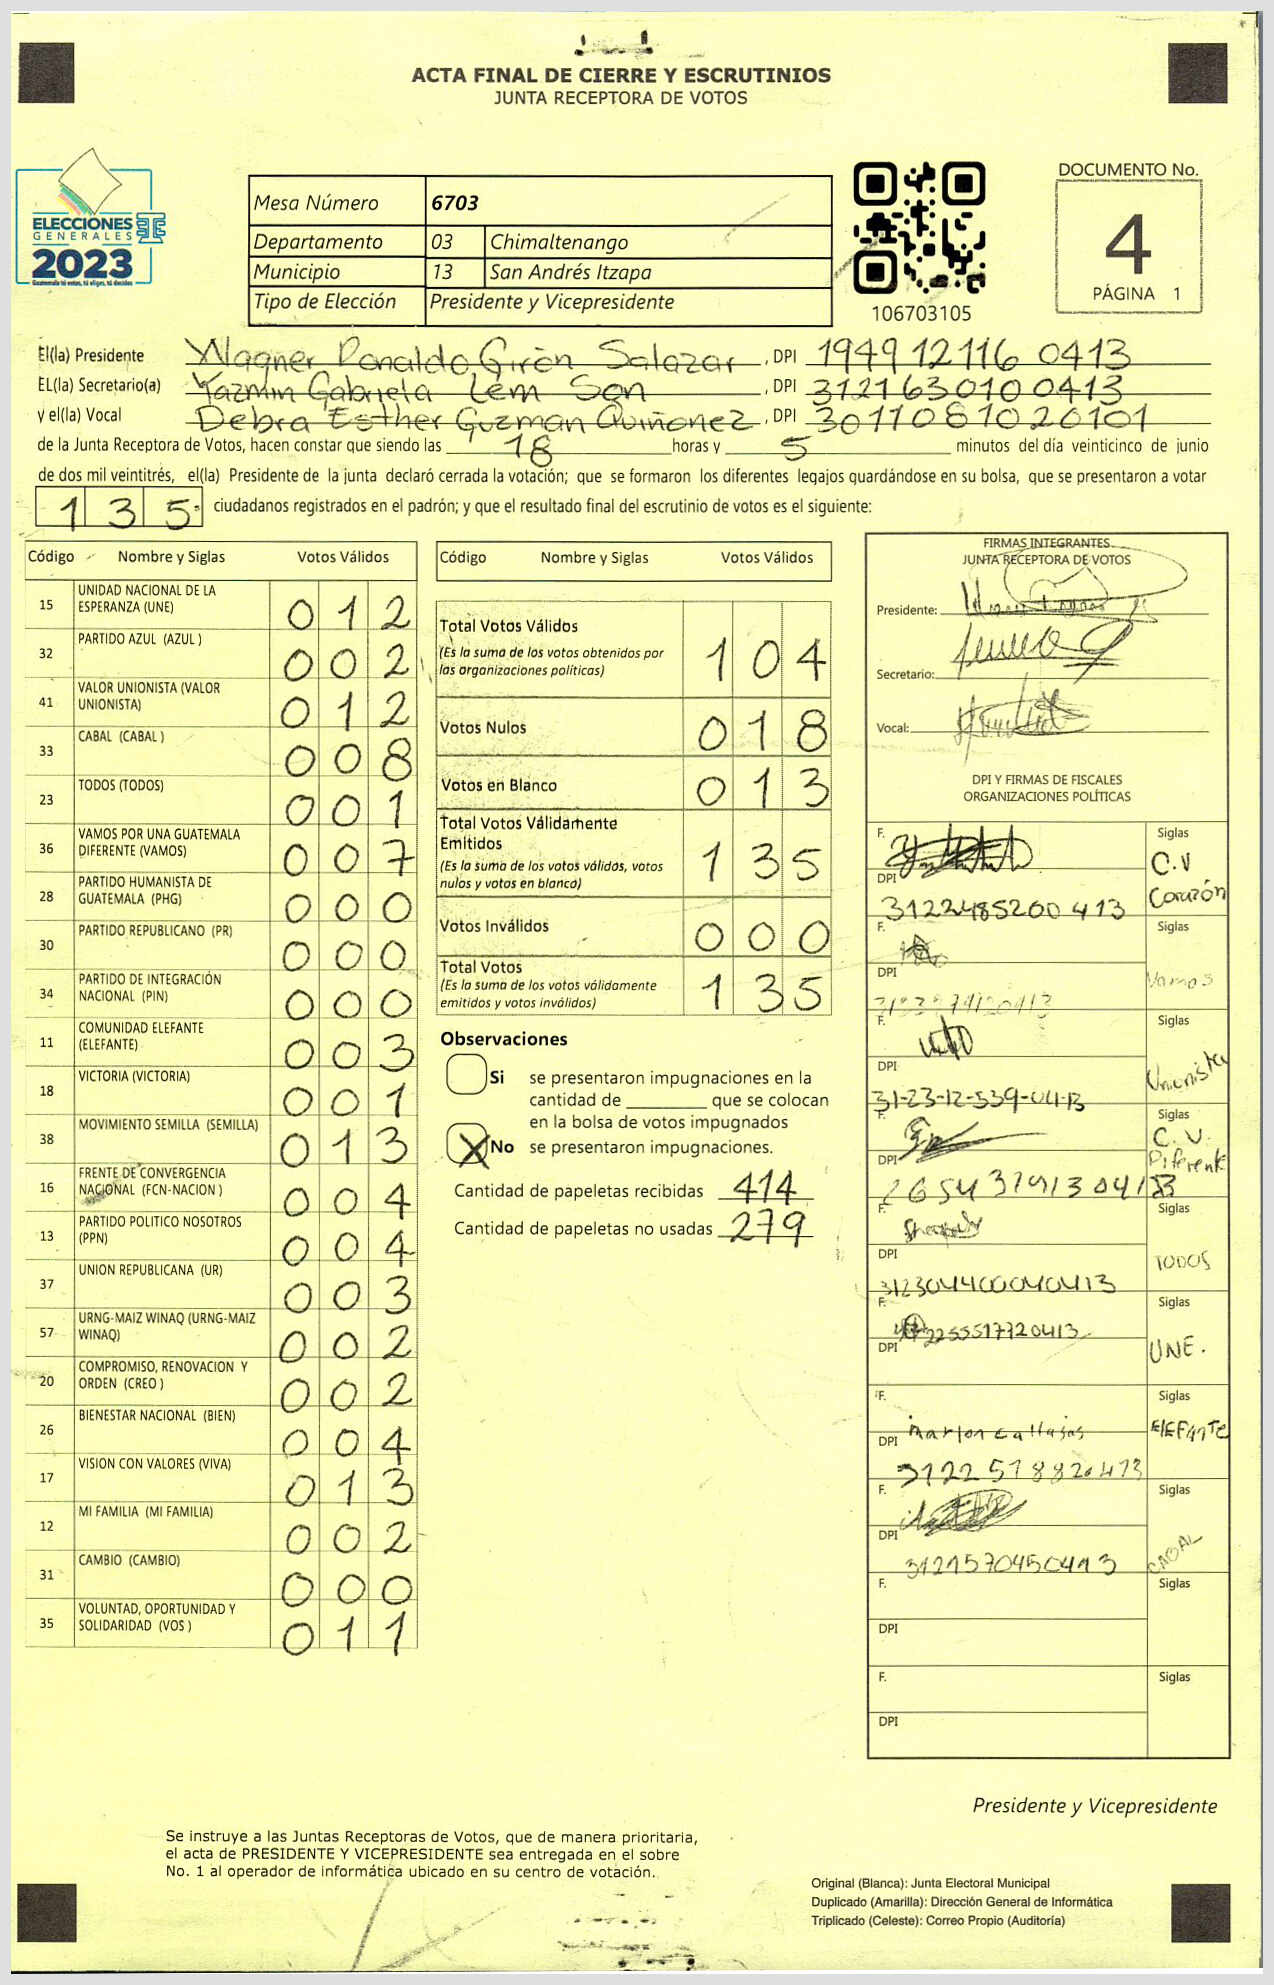 ACTA FINAL DE CIERRE Y ESCRUTINIOS
JUNTA RECEPTORA DE VOTOS
ELECCIONES
GENERALES
2023
Guatemala tú votas, tú eliges, tú decides
Mesa Número 6703
Departamento 03 Chimaltenango
Municipio 13 San Andrés Itzapa
Tipo de Elección Presidente y Vicepresidente
106703105
DOCUMENTO No.
4
PÁGINA 1
El(la) Presidente Wagner Ronaldo Girón Salazar, DPI 1949 12116 0413
EL(la) Secretario(a) Yazmin Gabriela Lem Son, DPI 312163010 0413
y el(la) Vocal Debra Esther Guzman Quiñonez, DPI 3011081020101
de la Junta Receptora de Votos, hacen constar que siendo las 18 horas y 5 minutos del día veinticinco de junio
de dos mil veintitrés, el(la) Presidente de la junta declaró cerrada la votación; que se formaron los diferentes legajos guardándose en su bolsa, que se presentaron a votar
135 ciudadanos registrados en el padrón; y que el resultado final del escrutinio de votos es el siguiente:
Código Nombre y Siglas Votos Válidos
15 UNIDAD NACIONAL DE LA ESPERANZA (UNE) 012
32 PARTIDO AZUL (AZUL ) 002
41 VALOR UNIONISTA (VALOR UNIONISTA) 012
33 CABAL (CABAL ) 008
23 TODOS (TODOS) 001
36 VAMOS POR UNA GUATEMALA DIFERENTE (VAMOS) 007
28 PARTIDO HUMANISTA DE GUATEMALA (PHG) 000
30 PARTIDO REPUBLICANO (PR) 000
34 PARTIDO DE INTEGRACIÓN NACIONAL (PIN) 000
11 COMUNIDAD ELEFANTE (ELEFANTE) 003
18 VICTORIA (VICTORIA) 001
38 MOVIMIENTO SEMILLA (SEMILLA) 013
16 FRENTE DE CONVERGENCIA NACIONAL (FCN-NACION ) 004
13 PARTIDO POLITICO NOSOTROS (PPN) 004
37 UNION REPUBLICANA (UR) 003
57 URNG-MAIZ WINAQ (URNG-MAIZ WINAQ) 002
20 COMPROMISO, RENOVACION Y ORDEN (CREO ) 002
26 BIENESTAR NACIONAL (BIEN) 004
17 VISION CON VALORES (VIVA) 013
12 MI FAMILIA (MI FAMILIA) 002
31 CAMBIO (CAMBIO) 000
35 VOLUNTAD, OPORTUNIDAD Y SOLIDARIDAD (VOS ) 011
Código Nombre y Siglas Votos Válidos
Total Votos Válidos 104
(Es la suma de los votos obtenidos por
las organizaciones políticas)
Votos Nulos 018
Votos en Blanco 013
Total Votos Válidamente
Emitidos 135
(Es la suma de los votos válidos, votos
nulos y votos en blanco)
Votos Inválidos 000
Total Votos 135
(Es la suma de los votos válidamente
emitidos y votos inválidos)
Observaciones
Si se presentaron impugnaciones en la
cantidad de ________ que se colocan
en la bolsa de votos impugnados
X No se presentaron impugnaciones.
Cantidad de papeletas recibidas 414
Cantidad de papeletas no usadas 279
FIRMAS INTEGRANTES
JUNTA RECEPTORA DE VOTOS
Presidente:
Secretario:
Vocal:
DPI Y FIRMAS DE FISCALES
ORGANIZACIONES POLÍTICAS
F. Siglas
C.V
Corazón
DPI 3122485200 413
F. Siglas
Vamos
DPI
F. Siglas
Unionista
DPI 31-23-12-539-0413
F. Siglas
C.V.
Diferente
DPI
F. Siglas
TODOS
DPI 312304400040413
F. Siglas
UNE.
DPI 2255517720413
F. Siglas
Marlon Callejas ElEFANTE
DPI 3122578820413
F. Siglas
CABAL
DPI 3121570450413
F. Siglas
DPI
F. Siglas
DPI
Presidente y Vicepresidente
Se instruye a las Juntas Receptoras de Votos, que de manera prioritaria,
el acta de PRESIDENTE Y VICEPRESIDENTE sea entregada en el sobre
No. 1 al operador de informática ubicado en su centro de votación.
Original (Blanca): Junta Electoral Municipal
Duplicado (Amarilla): Dirección General de Informática
Triplicado (Celeste): Correo Propio (Auditoría)